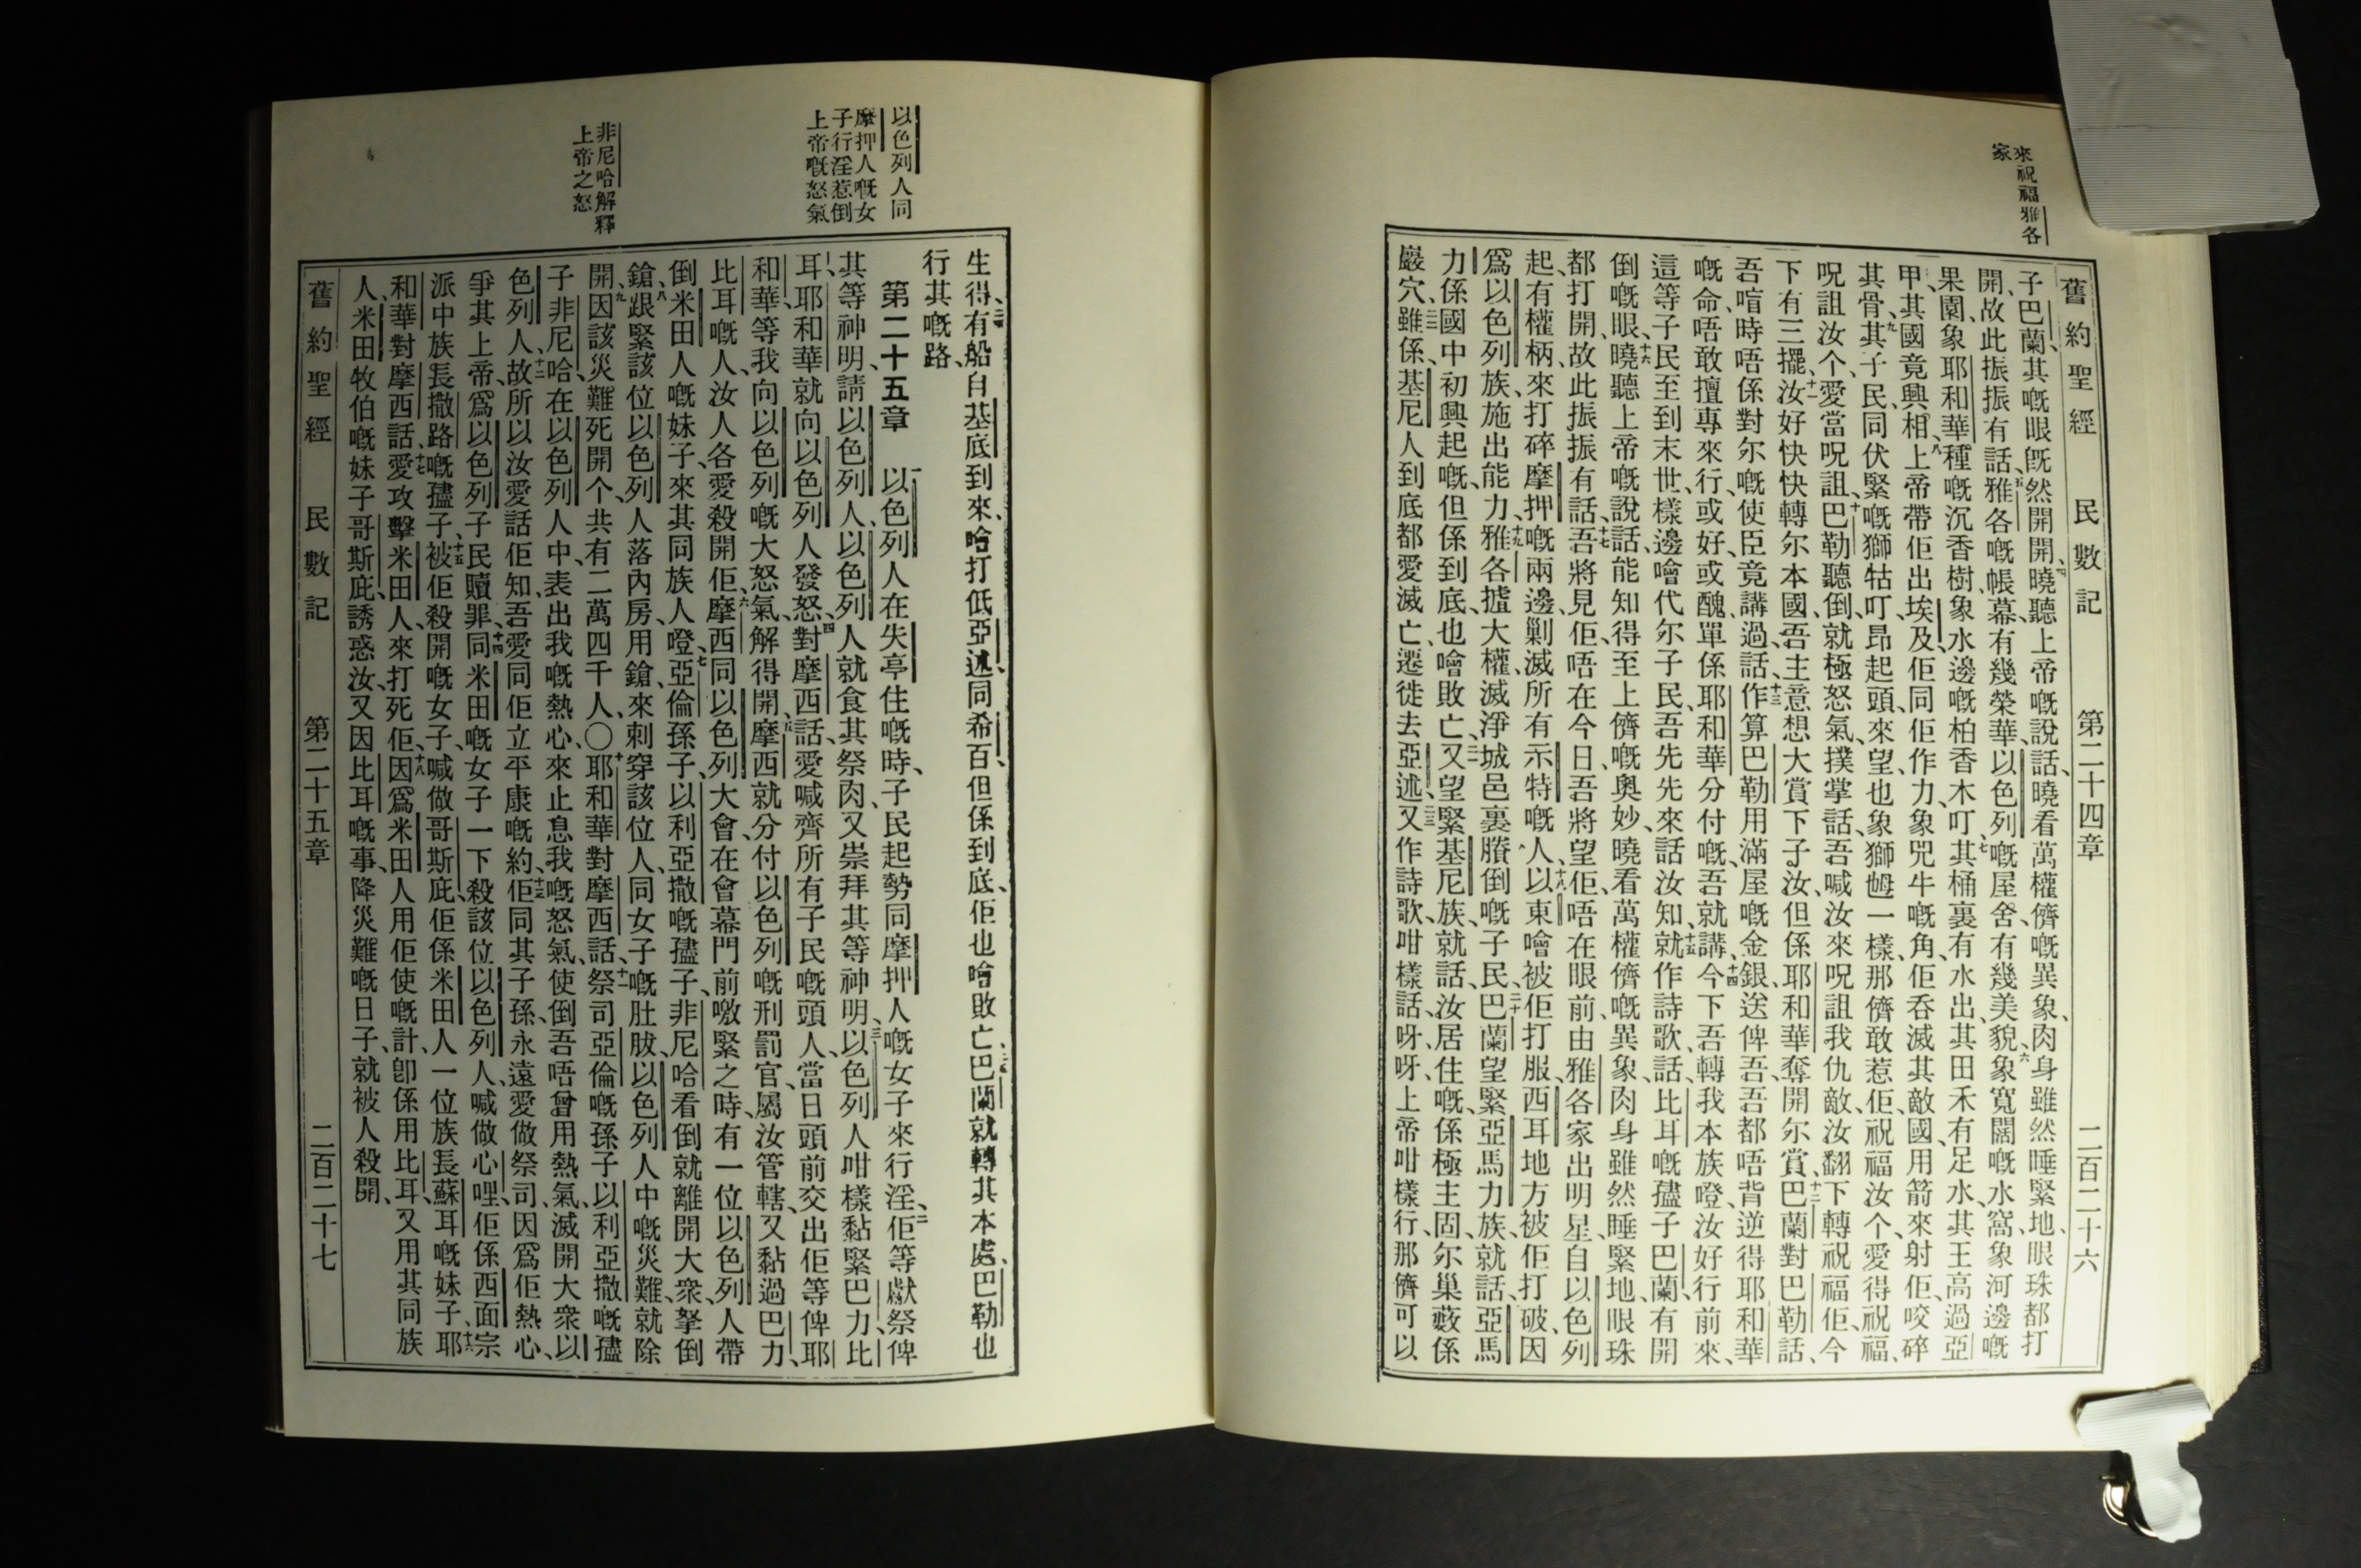 來祝福雅各
家
舊約聖經 民數記 第二十四章 二百二十六
子巴蘭、其嘅眼旣然開開、四曉聽上帝嘅說話、曉看萬權儕嘅異象、肉身雖然睡緊地、眼珠都打
開、故此振振有話、五雅各嘅帳幕、有幾榮華、以色列嘅屋舍、有幾美貌、六象寬闊嘅水窩、象河邊嘅
果園、象耶和華種嘅沉香樹、象水邊嘅柏香木叮、七其桶裏有水出、其田禾有足水、其王高過亞
甲、其國竟興相、八上帝帶佢出埃及、佢同佢作力、象兕牛嘅角、佢吞滅其敵國、用箭來射佢、咬碎
其骨、九其子民同伏緊嘅獅牯叮、昂起頭來望、也象獅乸一樣、那儕敢惹佢、祝福汝个、愛得祝福、
呪詛汝个、愛當呪詛、十巴勒聽倒、就極怒氣、撲掌話、吾喊汝來呪詛我仇敵、汝翻下轉祝福佢、今
下有三擺、十一汝好快快轉尔本國、吾主意想大賞下子汝、但係耶和華奪開尔賞、十二巴蘭對巴勒話、
吾喑時唔係對尔嘅使臣竟講過話、十三作算巴勒用滿屋嘅金銀送俾吾、吾都唔背逆得耶和華
嘅命、唔敢擅專來行、或好、或醜、單係耶和華分付嘅、吾就講、十四今下吾轉我本族噔、汝好行前來、
這等子民至到末世、樣邊噲代尔子民、吾先先來話汝知、十五就作詩歌話、比耳嘅孻子巴蘭、有開
倒嘅眼、十六曉聽上帝嘅說話、能知得至上儕嘅奧妙、曉看萬權儕嘅異象、肉身雖然睡緊地、眼珠
都打開、故此振振有話、十七吾將見佢、唔在今日、吾將望佢、唔在眼前、由雅各家出明星、自以色列
起有權柄、來打碎摩押嘅兩邊、剿滅所有示特嘅人、十八以東噲被佢打服、西耳地方被佢打破、因
爲以色列族、施出能力、十九雅各揸大權、滅淨城邑裏賸倒嘅子民、二十巴蘭望緊亞馬力族、就話、亞馬
力係國中初興起嘅、但係到底也噲敗亡、二一又望緊基尼族、就話、汝居住嘅、係極主固、尔巢藪係
巖穴、二二雖係基尼人、到底都愛滅亡、遷徙去亞述、二三又作詩歌咁樣話、呀呀、上帝咁樣行、那儕可以
生得、二四有船自基底到來、噲打低亞述同希百、但係到底、佢也噲敗亡、二五巴蘭就轉其本處、巴勒也
行其嘅路、
第二十五章 一以色列人在失亭住嘅時、子民起勢同摩押人嘅女子來行淫、二佢等獻祭俾
其等神明、請以色列人、以色列人就食其祭肉、又崇拜其等神明、三以色列人咁樣黏緊巴力比
耳、耶和華就向以色列人發怒、四對摩西話、愛喊齊所有子民嘅頭人、當日頭前交出佢等俾耶
和華等我向以色列嘅大怒氣解得開、五摩西就分付以色列嘅刑罰官、屬汝管轄、又黏過巴力、
比耳嘅人、汝人各愛殺開佢、六摩西同以色列大會、在會幕門前噭緊之時、有一位以色列人帶
倒米田人嘅妹子、來其同族人噔、七亞倫孫子、以利亞撒嘅孻子、非尼哈看倒、就離開大衆、拏倒
鎗、八跟緊該位以色列人落內房、用鎗來刺穿該位人、同女子嘅肚胈、以色列人中嘅災難、就除
開、九因該災難死開个、共有二萬四千人、〇十耶和華對摩西話、十一祭司亞倫嘅孫子、以利亞撒嘅孻
子、非尼哈在以色列人中、表出我嘅熱心、來止息我嘅怒氣、使倒吾唔曾用熱氣、滅開大衆以
色列人、十二故所以汝愛話佢知、吾愛同佢立平康嘅約、十三佢同其子孫、永遠愛做祭司、因爲佢熱心、
爭其上帝、爲以色列子民贖罪、十四同米田嘅女子一下殺該位以色列人、喊做心哩、佢係西面宗
派中族長撒路嘅孻子、十五被佢殺開嘅女子、喊做哥斯庇、佢係米田人一位族長蘇耳嘅妹子、十六耶
和華對摩西話、十七愛攻擊米田人、來打死佢、十八因爲米田人用佢使嘅計、卽係用比耳、又用其同族
人、米田牧伯嘅妹子哥斯庇、誘惑汝、又因比耳嘅事、降災難嘅日子、就被人殺開、
舊約聖經 民數記 第二十五章 二百二十七
以色列人同
摩押人嘅女
子行淫惹倒
上帝嘅怒氣
非尼哈解釋
上帝之怒